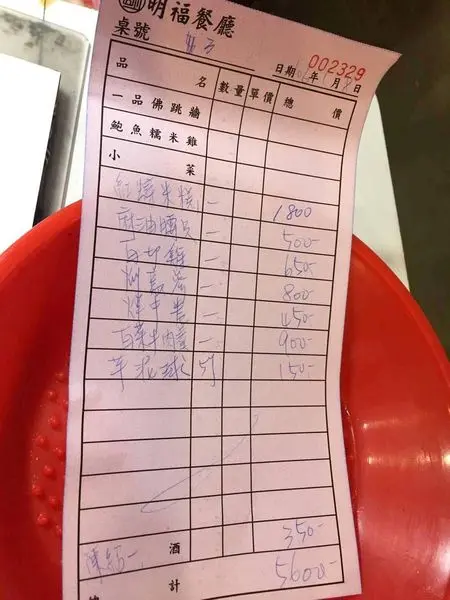 明福餐廳
桌號
002329
日期 年 月 日
品名 數量 單價 總價
一品佛跳牆
鮑魚糯米雞
小菜
紅蟳米糕 一 1800
麻油腰只 一 500-
白切雞 一 650-
一 800-
一 450-
一 900-
芋泥球 150-
酒 350-
計 5600-